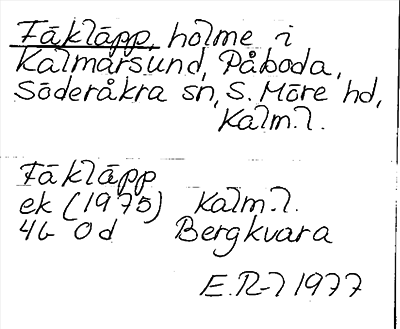 Fäkläpp, holme i
Kalmarsund, Påboda,
Söderåkra sn, S. Möre hd,
Kalm.l.
Fäkläpp
ek (1975) Kalm.l.
4G 0d Bergkvara
E.R-l 1977